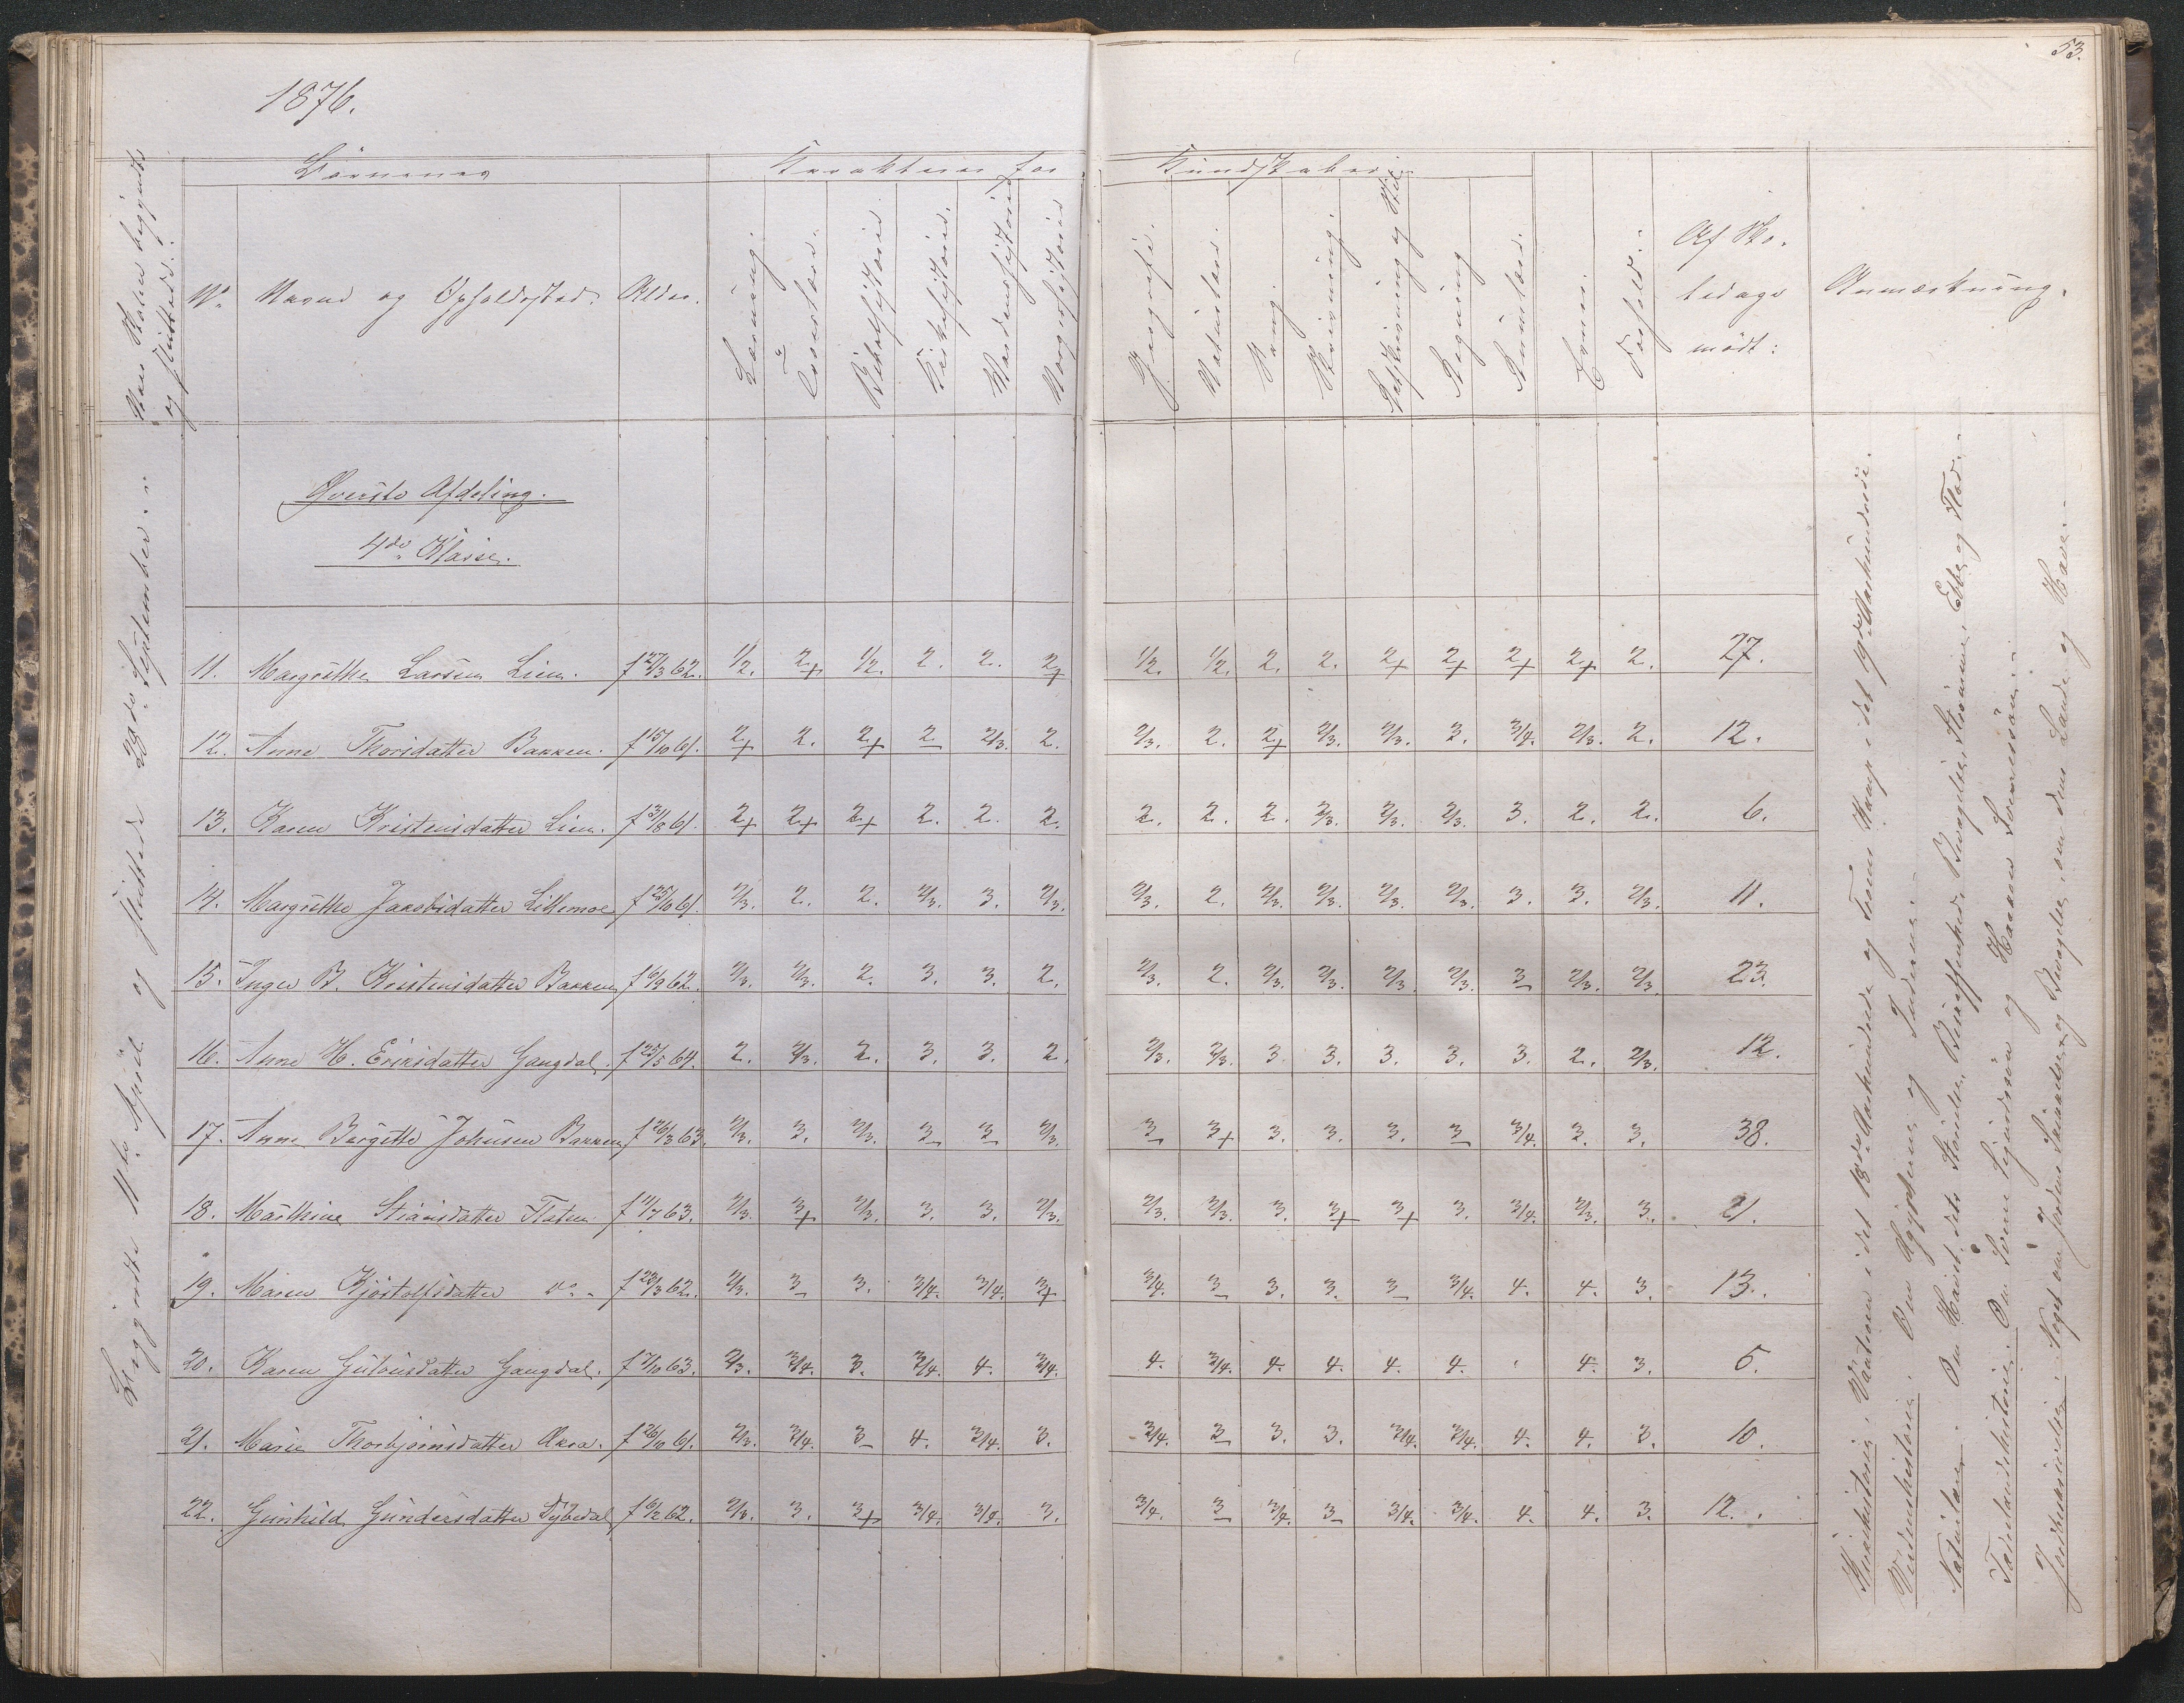 53.
1876.
Naar Skolen begyndte
og sluttede.
Børnenes
Karakterer for
Kundskaber i
No
Navne og Opholdssted.
Alder.
Læsning.
Troeslære.
Bibelhistorie.
Kirkehistorie.
Verdenshistorie
Norgeshistorie
Geografi.
Naturlære.
Sang.
Skrivning.
Retskrivning og Stil
Regning
Rumlære.
Evner.
Forhold.
Af Sko-
ledage
mødt:
Anmærkning.
Øverste Afdeling.
4de Klasse.
Begyndte 11te April og sluttede 29de September.
11. Margrethe Larsen Lien. f 27/3 62. 1/2. 2+ 1/2. 2. 2. 2+ 1/2. 1/2. 2. 2. 2+ 2+ 2+ 2+ 2. 27.
12. Anne Thorsdatter Bakken. f 15/10 61. 2+ 2. 2+ 2 2/3. 2. 2/3. 2. 2+ 2/3. 2/3. 3. 3/4. 2/3. 2. 12.
13. Karen Kristensdatter Lien. f 31/8 61. 2+ 2+ 2+ 2. 2. 2. 2. 2. 2. 2/3. 2/3. 2/3. 3. 2. 2. 6.
14. Margrethe Jacobsdatter Lillemoe f 25/10 61. 2/3. 2. 2. 2/3. 3. 2/3. 2/3. 2. 2/3. 2/3. 2/3. 2/3. 3. 3. 2/3. 11.
15. Inger B. Kristensdatter Bakken f 6/9 62. 2/3. 2/3. 2. 3. 3. 2. 2/3. 2. 2/3. 2/3. 2/3. 2/3. 3 2/3. 2/3. 23.
16. Anne H. Eriksdatter Gangdal. f 25/5 64. 2. 2/3. 2. 3. 3. 2. 2/3. 2/3. 3 3. 3. 3. 3. 2. 2/3. 12.
17. Anne Bergitte Johnsen Bakken f 26/3 63. 2/3. 3. 2/3. 3 3 2/3. 3 3+ 3. 3. 3. 3 3/4. 3. 3. 38.
18. Marthine Stiansdatter Flaten. f 11/7 63. 2/3. 3+ 2/3. 3. 3. 2/3. 2/3. 2/3. 3. 3+ 3+ 3. 3/4. 2/3. 3. 21.
19. Maren Kjøstolfsdatter do f 23/3 62. 2/3. 3 3. 3/4. 3/4. 3+ 3/4. 3 3. 3. 3 3/4. 4. 4. 3. 13.
20. Karen Gulovsdatter Gangdal. f 7/10 63. 2/3. 3/4. 3. 3/4. 4. 3/4. 4. 3/4. 4. 4. 4. 4. 4. 3. 5.
21. Marie Thorbjørnsdatter Akra. f 26/10 61. 2/3. 3/4. 3 4. 3/4. 3. 3/4. 3 3. 3. 3/4. 3/4. 4. 4. 3. 10.
22. Gunhild Gundersdatter Dybedal f 6/2 62. 2/3. 3. 3+ 3/4. 3/4. 3. 3/4. 3 3/4. 3 3/4. 3/4. 4. 4. 3. 12.
Kirkehistorie, i det 18de Aarhundrede og Troens Kamp i det 19de Aarhundrede.
Verdenshistorie. Om Ægypterne og Inderne.
Naturlære. Om Havet, dets Stande, Beskaffenhed, Bevægelser, Strømme, Ebbe og Flod.
Fædrelandshistorie. Om Svenne Sigurdssøn og Haakon Sverressøn.
Jordbeskrivelse. Noget om Jordens Inddeling og Bevægelse, om dens Lande og Have.